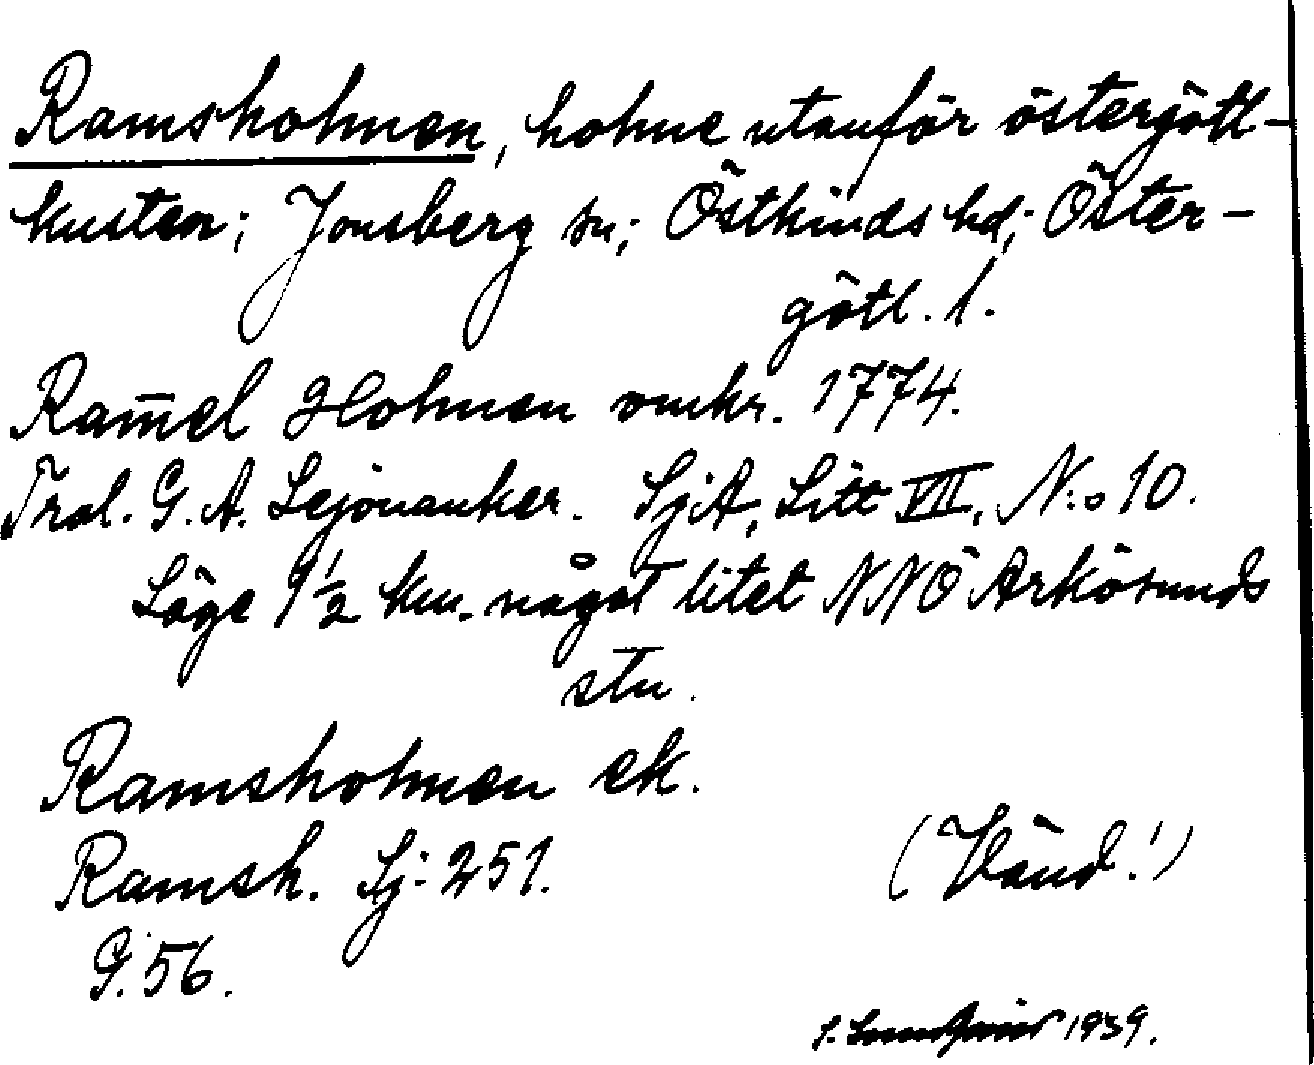 Ramsholmen, holme utanför östergötl-
kusten; Jonsberg sn; Östkinds hd; Öster-
götl. l.
Ram̅el Holmen omkr. 1774.
Trol. G. A. Lejonanker. SjA, Litt VII, N:o 10.
Läge 1½ km. något litet NNÖ Arkösunds
stn.
Ramsholmen ek.
Ramsh. Sj: 251.
(Vänd!)
G. 56.
1939.